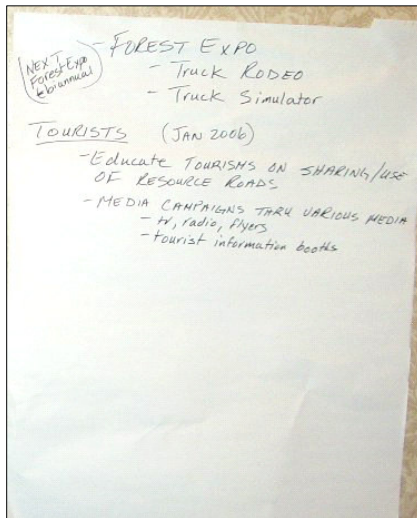 - FOREST EXPO
NEXT
Forest Expo
biannual
- TRUCK RODEO
- TRUCK Simulator
TOURISTS (JAN 2006)
- Educate TOURISMS ON SHARING/USE
OF RESOURCE ROADS
- MEDIA CAMPAIGNS THRU VARIOUS MEDIA
- tv, radio, flyers
- tourist information booths